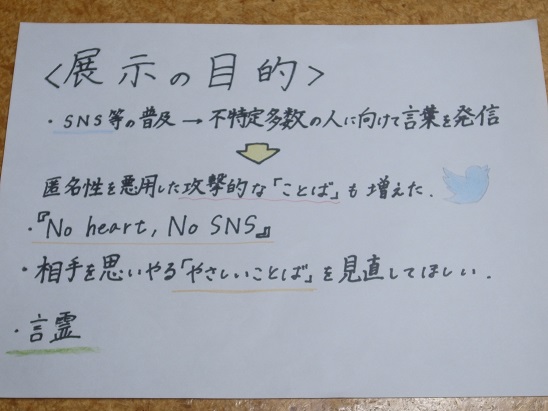 <展示の目的>
・SNS等の普及→不特定多数の人に向けて言葉を発信
匿名性を悪用した攻撃的な「ことば」も増えた.
・『No heart, No SNS』
・相手を思いやる「やさしいことば」を見直してほしい.
・言霊